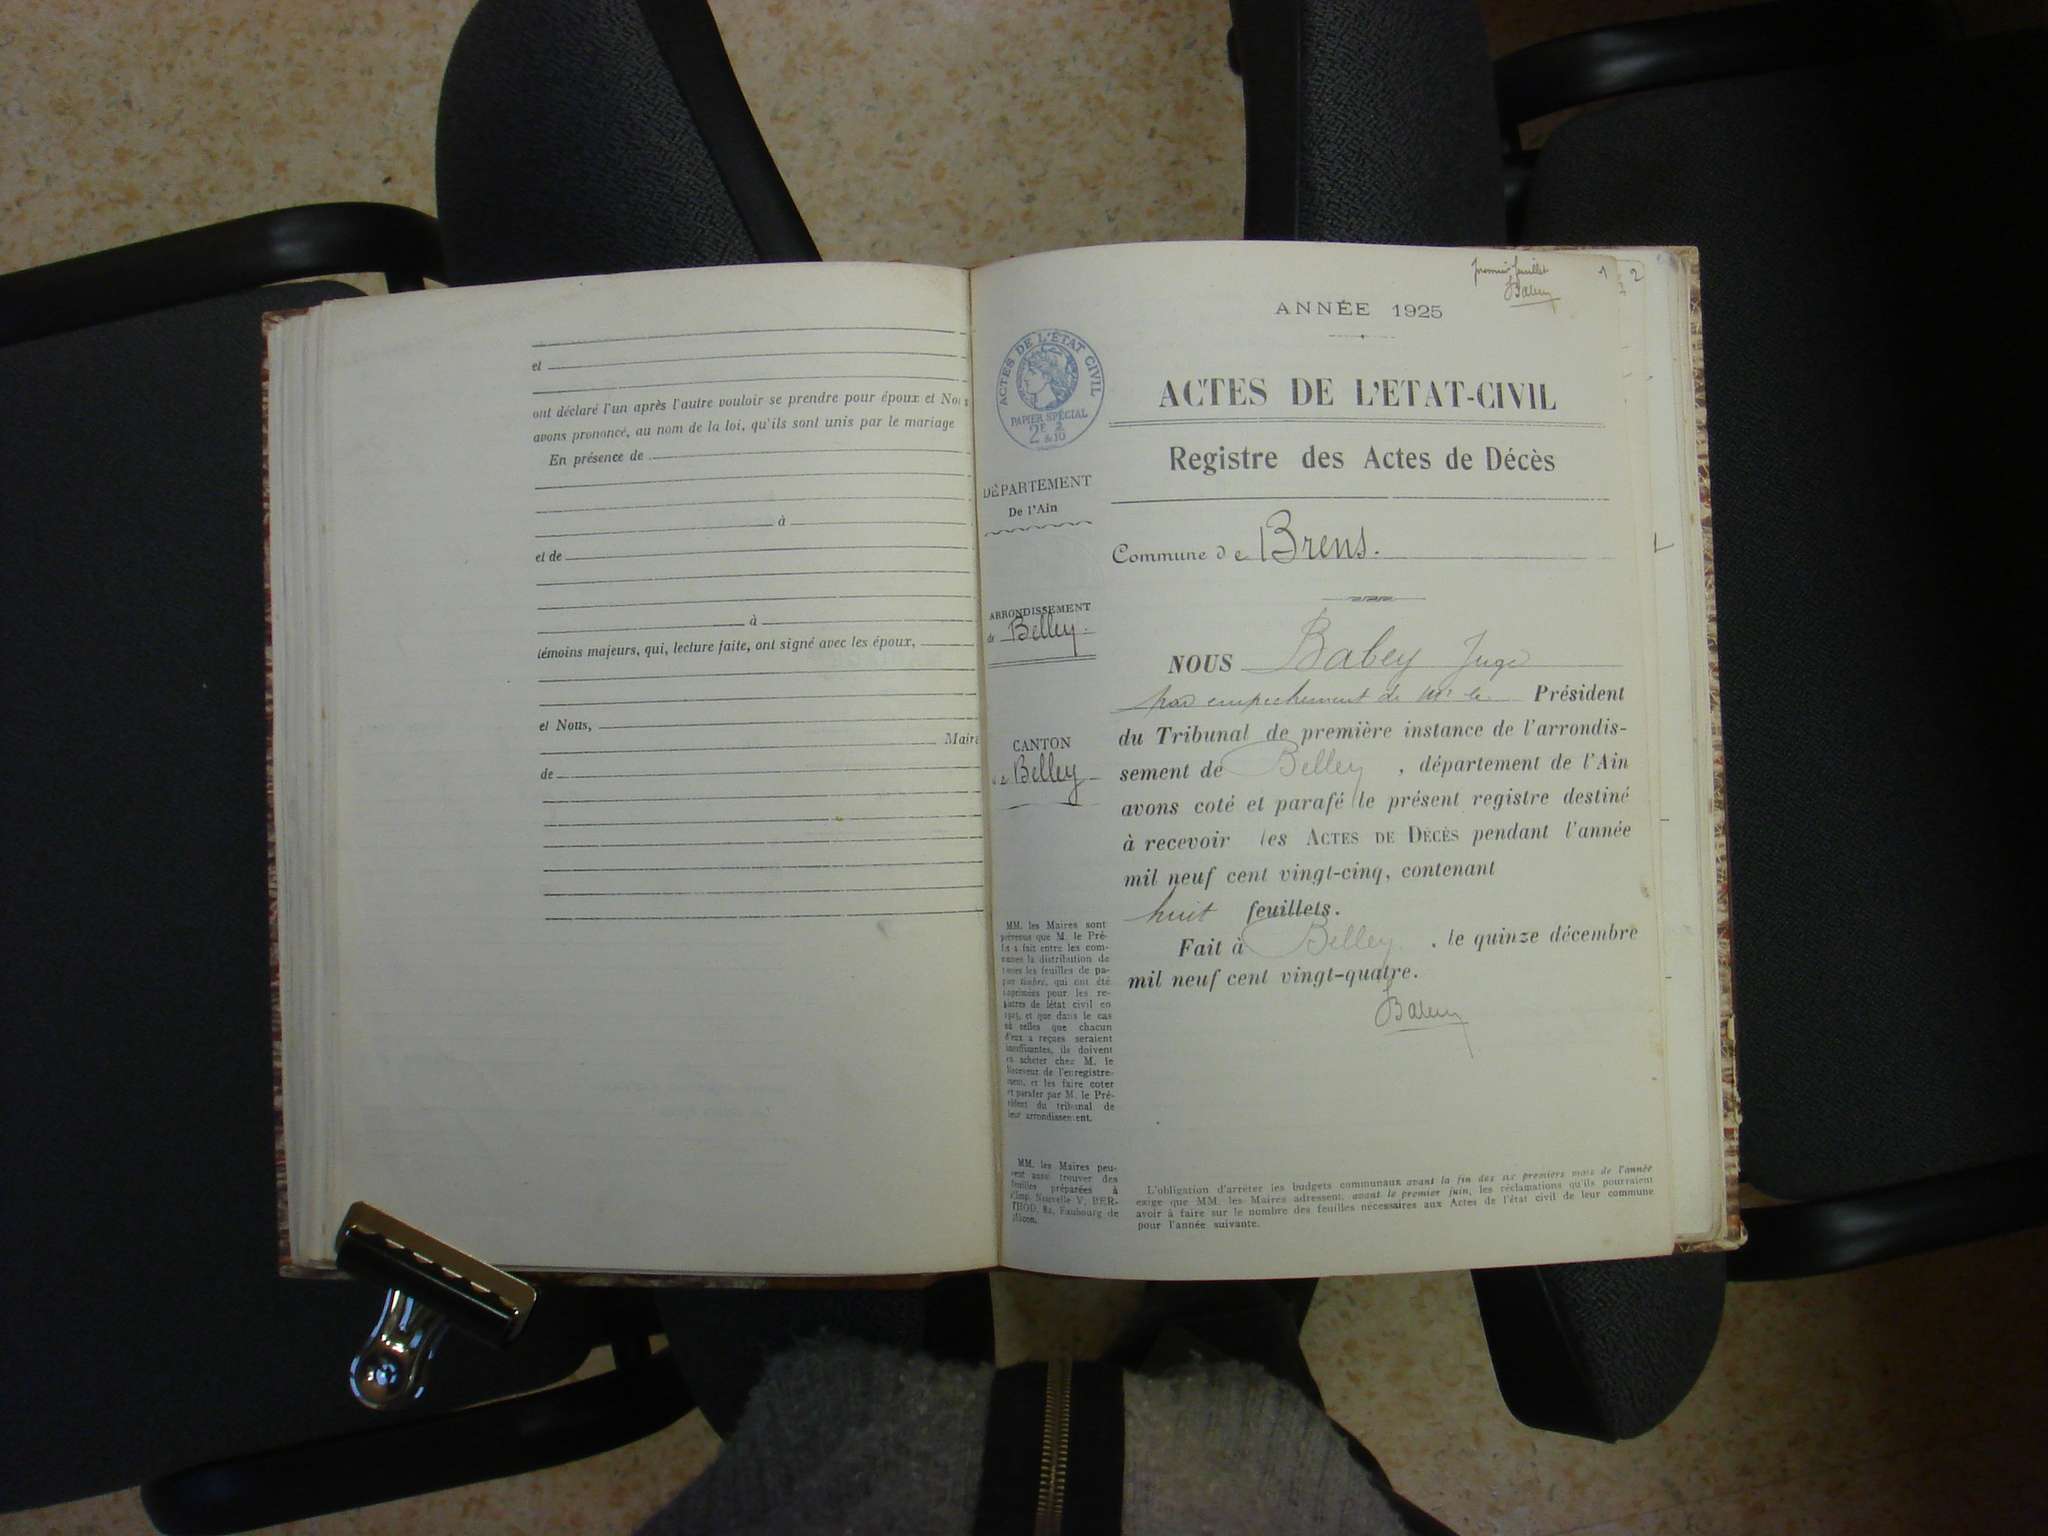 et
ont déclaré l'un après l'autre vouloir se prendre pour époux et Nous
avons prononcé, au nom de la loi, qu'ils sont unis par le mariage
En présence de
à
et de
à
témoins majeurs, qui, lecture faite, ont signé avec les époux,
et Nous,
Maire
de
premier feuillet
1 2
ANNÉE 1925
ACTES DE L'ÉTAT CIVIL
PAPIER SPÉCIAL
2F 2
&10
ACTES DE L'ETAT-CIVIL
Registre des Actes de Décès
DÉPARTEMENT
De l'Ain
Commune de Brens.
ARRONDISSEMENT
de Belley.
CANTON
de Belley
NOUS Babey Juge
par empechement de Mr le Président
du Tribunal de première instance de l'arrondis-
sement de Belley, département de l'Ain
avons coté et parafé le présent registre destiné
à recevoir les ACTES DE DÉCÈS pendant l'année
mil neuf cent vingt-cinq, contenant
huit feuillets.
Fait à Belley, le quinze décembre
mil neuf cent vingt-quatre.
MM. les Maires sont
prévenus que M. le Pré-
fet a fait entre les com-
munes la distribution de
toutes les feuilles de pa-
pier timbré, qui ont été
imprimées pour les re-
gistres de létat civil en
1925, et que dans le cas
où celles que chacun
d'eux a reçues seraient
insuffisantes, ils doivent
en acheter chez M. le
Receveur de l'enregistre-
ment, et les faire coter
et parafer par M. le Pré-
sident du tribunal de
leur arrondissement.
MM. les Maires peu-
vent aussi trouver des
feuilles préparées à
l'Imp. Nouvelle V. BER-
THOD, 8a, Faubourg de
Mâcon.
L'obligation d'arrêter les budgets communaux avant la fin des six premiers mois de l'année
exige que MM. les Maires adressent, avant le premier juin, les réclamations qu'ils pourraient
avoir à faire sur le nombre des feuilles nécessaires aux Actes de l'état civil de leur commune
pour l'année suivante.